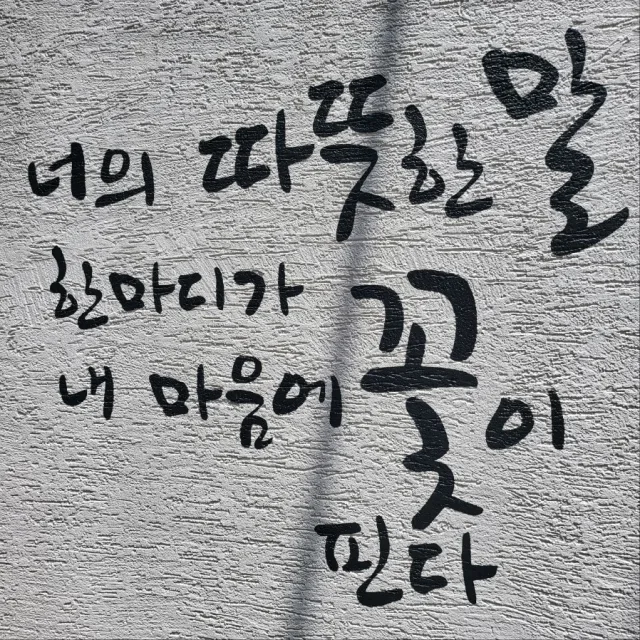 너의 따뜻한 말
한마디가
내 마음에 꽃이
핀다